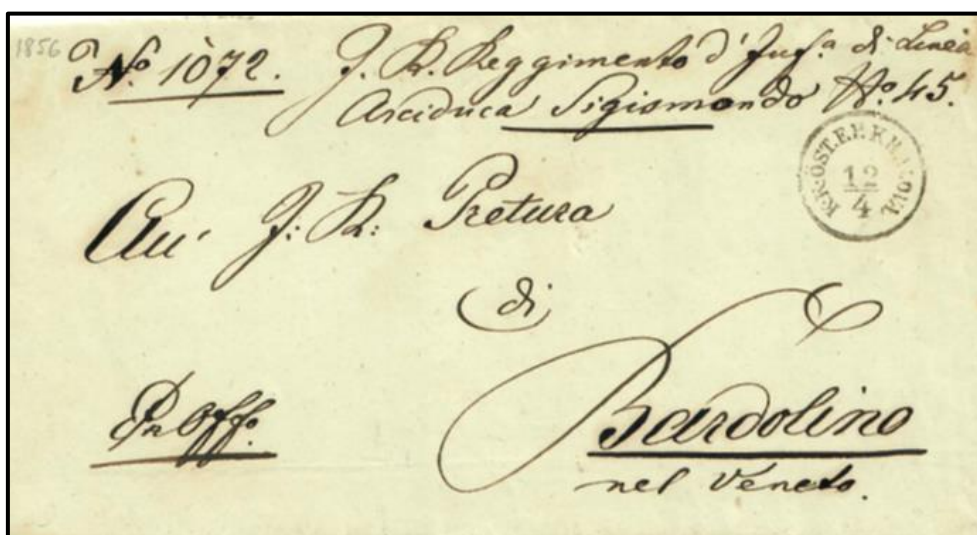 1856
No. 1072. I. R. Reggimento d'Inf.a di Linea
Arciduca Sigismondo No. 45.
12
4
All' I: R: Pretura
di
Bardolino
nel Veneto.